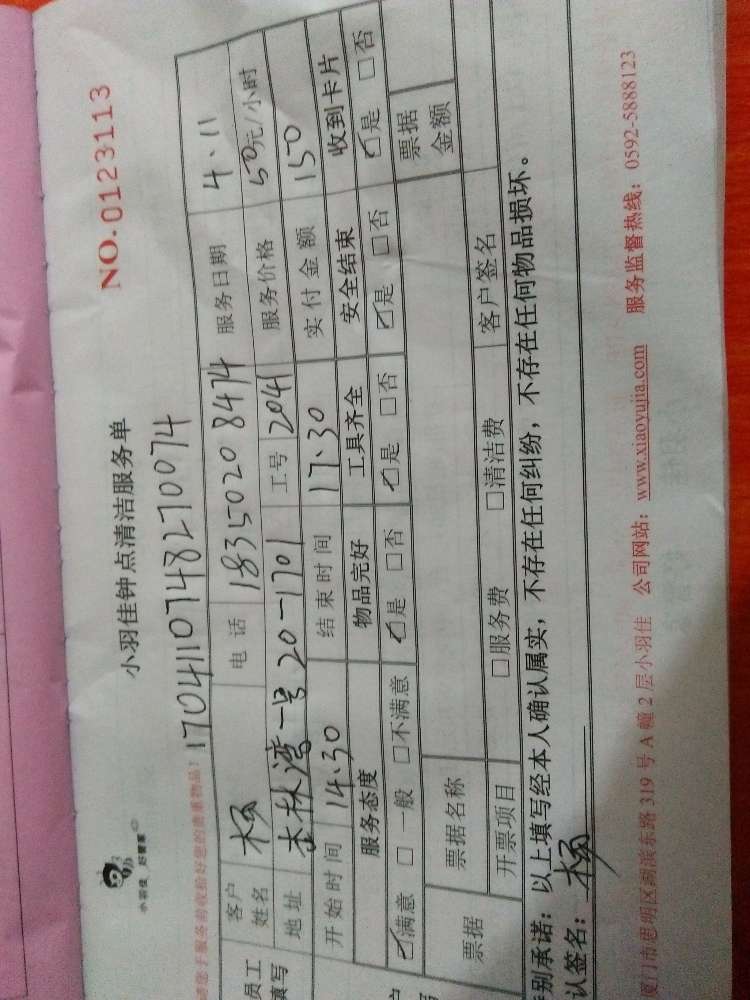 小羽佳 好管家
小羽佳钟点清洁服务单
NO.0123113
请您于服务前收拾好您的贵重物品！
170411074827 0074
员工
填写
客户姓名 杨 电话 18350208474 服务日期 4.11
地址 杏林湾一号20-1701 工号 2041 服务价格 50元/小时
开始时间 14.30 结束时间 17.30 实付金额 150
服务态度 物品完好 工具齐全 安全结束 收到卡片
☑满意 □一般 □不满意 ☑是 □否 ☑是 □否 ☑是 □否 ☑是 □否
票据 票据名称 票据金额
开票项目 □服务费 □清洁费 客户签名
别承诺：以上填写经本人确认属实，不存在任何纠纷，不存在任何物品损坏。
认签名：杨
厦门市思明区湖滨东路319号A幢2层小羽佳 公司网站：www.xiaoyujia.com 服务监督热线：0592-5888123